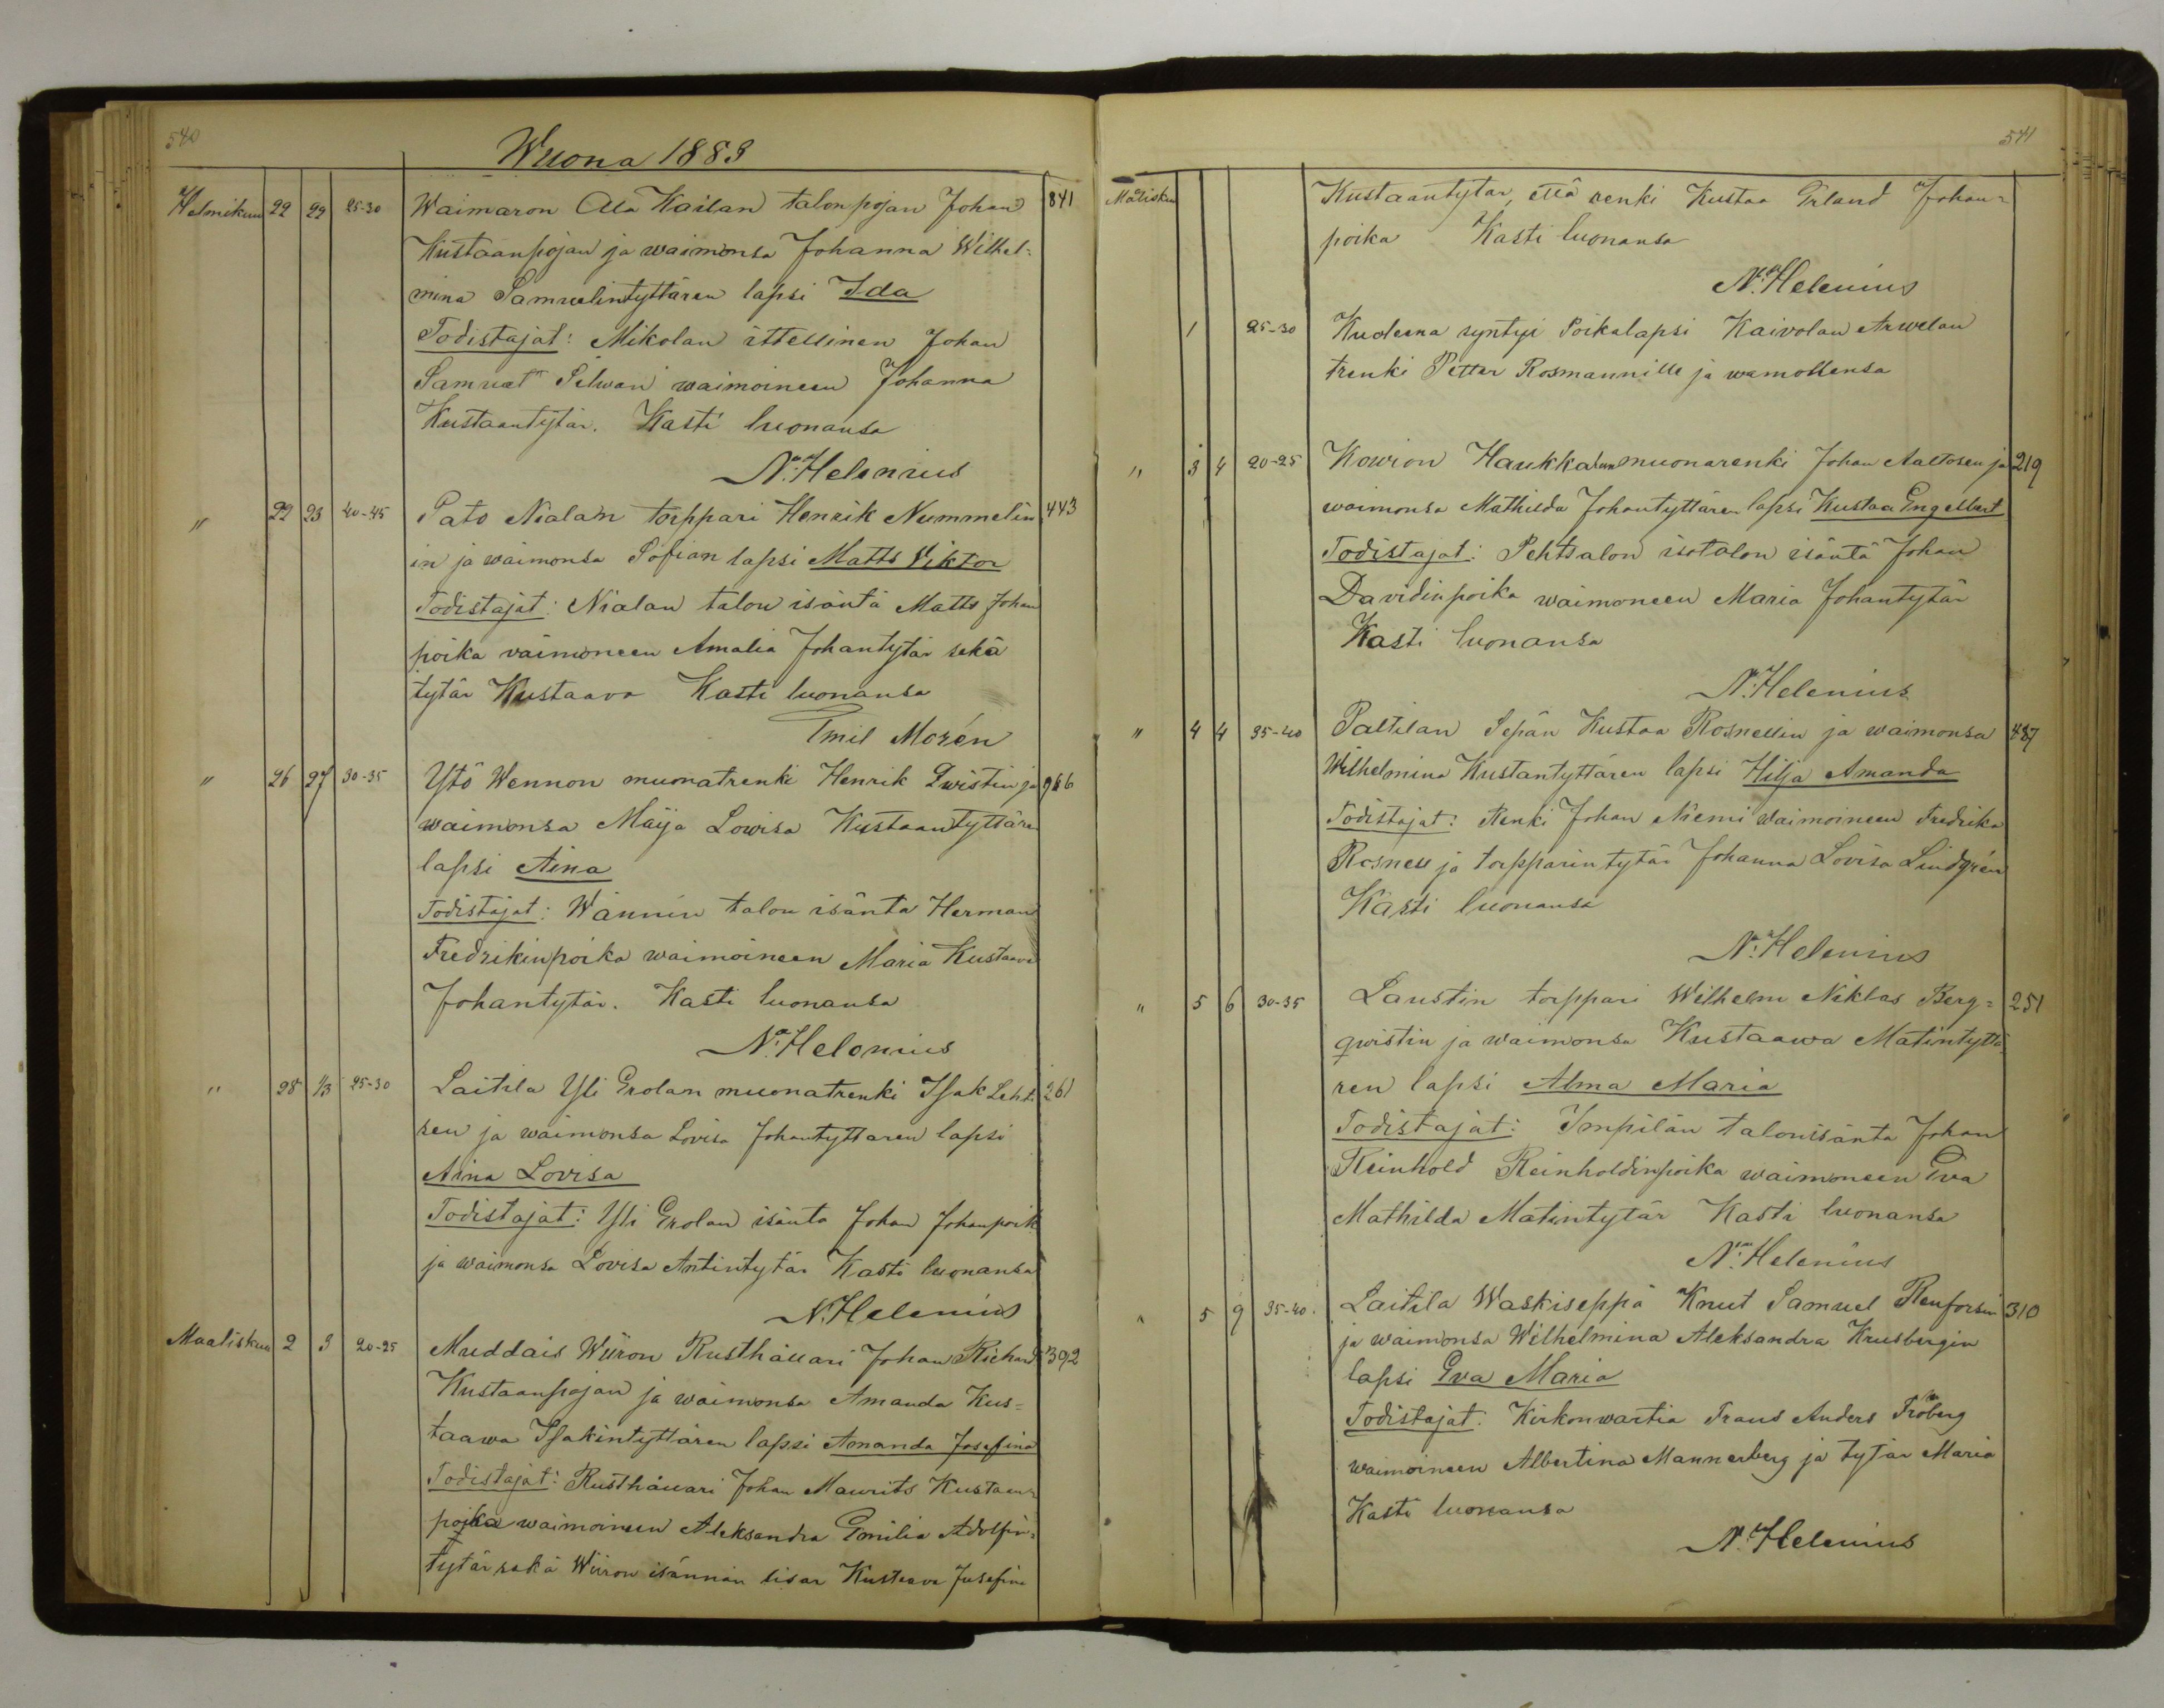 540
Wuona 1883
Helmikuu 22 23 25-30 Waimaron Ala Kailan talonpojan Johan 841
Kustaanpojan ja waimonsa Johanna Wilhel-
mina Samuelintyttären lapsi Ida
Todistajat: Mikolan ittellinen Johan
Samuel Selwan waimoineen Johanna
Kustaantytär. Kasti luonansa
N. Helenius
" 22 23 40-45 Pato Nialan torppari Henrik Nummelin 443
in ja waimonsa Sofian lapsi Matts Viktor
Todistajat: Nialan talon isäntä Matts Johan
poika vaimoneen Amalia Johantytär sekä
tytär Kustaava Kasti luonansa
Emil Morén
" 26 27 30-35 Ytö Wennon muonatrenki Henrik Qwistin ja 966
waimonsa Maija Lowisa Kustaantyttären
lapsi Aina
Todistajat: Wännin talon isäntä Herman
Fredrikinpoika waimoineen Maria Kustaava
Johantytär. Kasti luonansa
N. Helenius
" 28 1/3 25-30 Laitila Yli Erolan muonatrenki Isak Leht. 261
sen ja waimonsa Lovisa Johantyttaren lapsi
Aina Lovisa
Todistajat: Yli Erolan isäntä Johan Johanpoik
ja waimonsa Lovisa Antintytär Kasti luonansa
N. Helenius
Maaliskuu 2 3 20-25 Muddais Wiiron Rusthållari Johan Richard 392
Kustaanpojan ja waimonsa Amanda Kus-
taawa Isakintyttären lapsi Amanda Josefina
Todistajat: Rusthållari Johan Maurits Kustaan-
poika waimoineen Aleksandra Emilia Adolfin-
tytär sekä Wiiron isännän sisar Kustaava Josefina
541
Maalisku Kustaantytär, että renki Kustaa Erland Johan-
poika Kasti luonansa
N. Helenius
1 25-30 Kuoleena syntyi Poikalapsi Kaivolan Arwelan
trenki Petter Rosmannille ja wamollensa
" 3 4 20-25 Kowion Haukkalan muonarenki Johan Aaltosen ja 219
waimonsa Mathilda Johantyttären lapsi Kustaa Engelbert
Todistajat: Pehtsalon isotalon isäntä Johan
Davidinpoika waimoneen Maria Johantytär
Kasti luonansa
N. Helenius
" 4 4 35-40 Paltilan Sepän Kustaa Rosnellin ja waimonsa 487
Wilhelmina Kustantyttären lapsi Hilja Amanda
Todistajat: Renki Johan Niemi waimoineen Fredrika
Rosnell ja torpparin tytär Johanna Lovisa Lindgrén
Kasti luonansa
N. Helenius
" 5 6 30-35 Laustin torppari Wilhelm Niklas Berg- 251
qwistin ja waimonsa Kustaawa Matintyttä-
ren lapsi Alma Maria
Todistajat: Impilän talonisänta Johan
Reinhold Reinholdinpoika waimoneen Eva
Mathilda Matintytär Kasti luonansa
N. Helenius
" 5 9 35-40 Laitila Waskiseppä Knut Samuel Renforsin 310
ja waimonsa Wilhelmina Aleksandra Krusbergin
lapsi Eva Maria
Todistajat: Kirkonwartia Frans Anders Fröberg
waimoineen Albertina Mannerberg ja tytär Maria
Kasti luonansa
N. Helenius